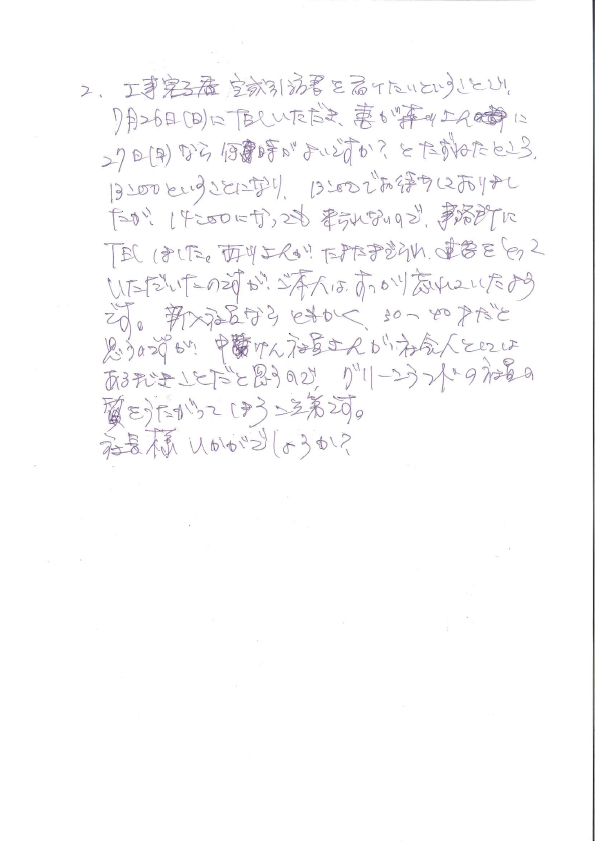 2. 工事完了 完成引渡書を届けたいということで、
7月26日(日)にTELいただき、妻が さんに
27日(月)なら何時がよいですか?とたずねたところ、
13:00ということになり、13:00でお待ちしておりまし
たが、14:00になっても来られないので、事務所に
TELしました。西川さんが、たまたまでられ、連絡をとって
いただいたのですが、ご本人は、すっかり忘れていたよう
です。新入社員ならともかく、30〜40才だと
思うのですが、中けん社員さんが、社会人としては
あるまじきことだと思うので、グリーンランドの社員の
質をうたがってしまう次第です。
社長様 いかがでしょうか?